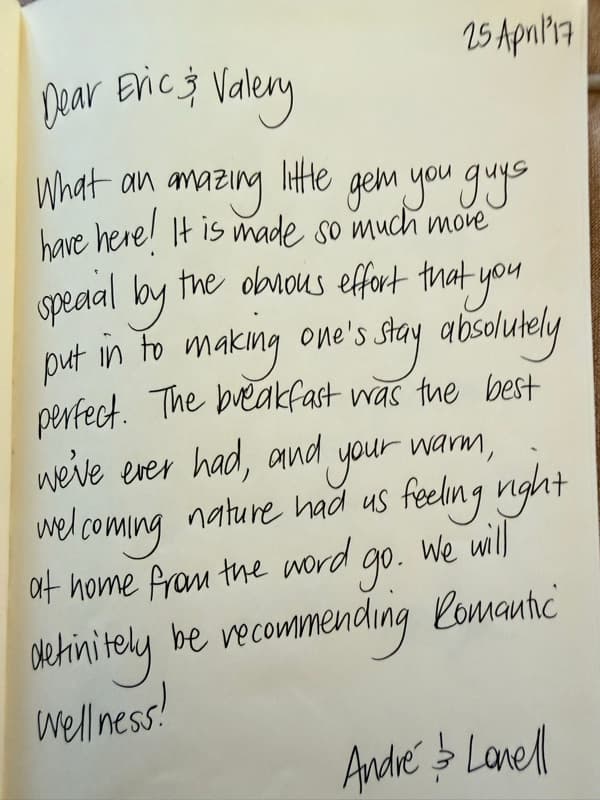 25 April'17
Dear Eric & Valery
What an amazing little gem you guys
have here! It is made so much more
special by the obvious effort that you
put in to making one's stay absolutely
perfect. The breakfast was the best
we've ever had, and your warm,
welcoming nature had us feeling right
at home from the word go. We will
definitely be recommending Romantic
Wellness!
André & Lonell